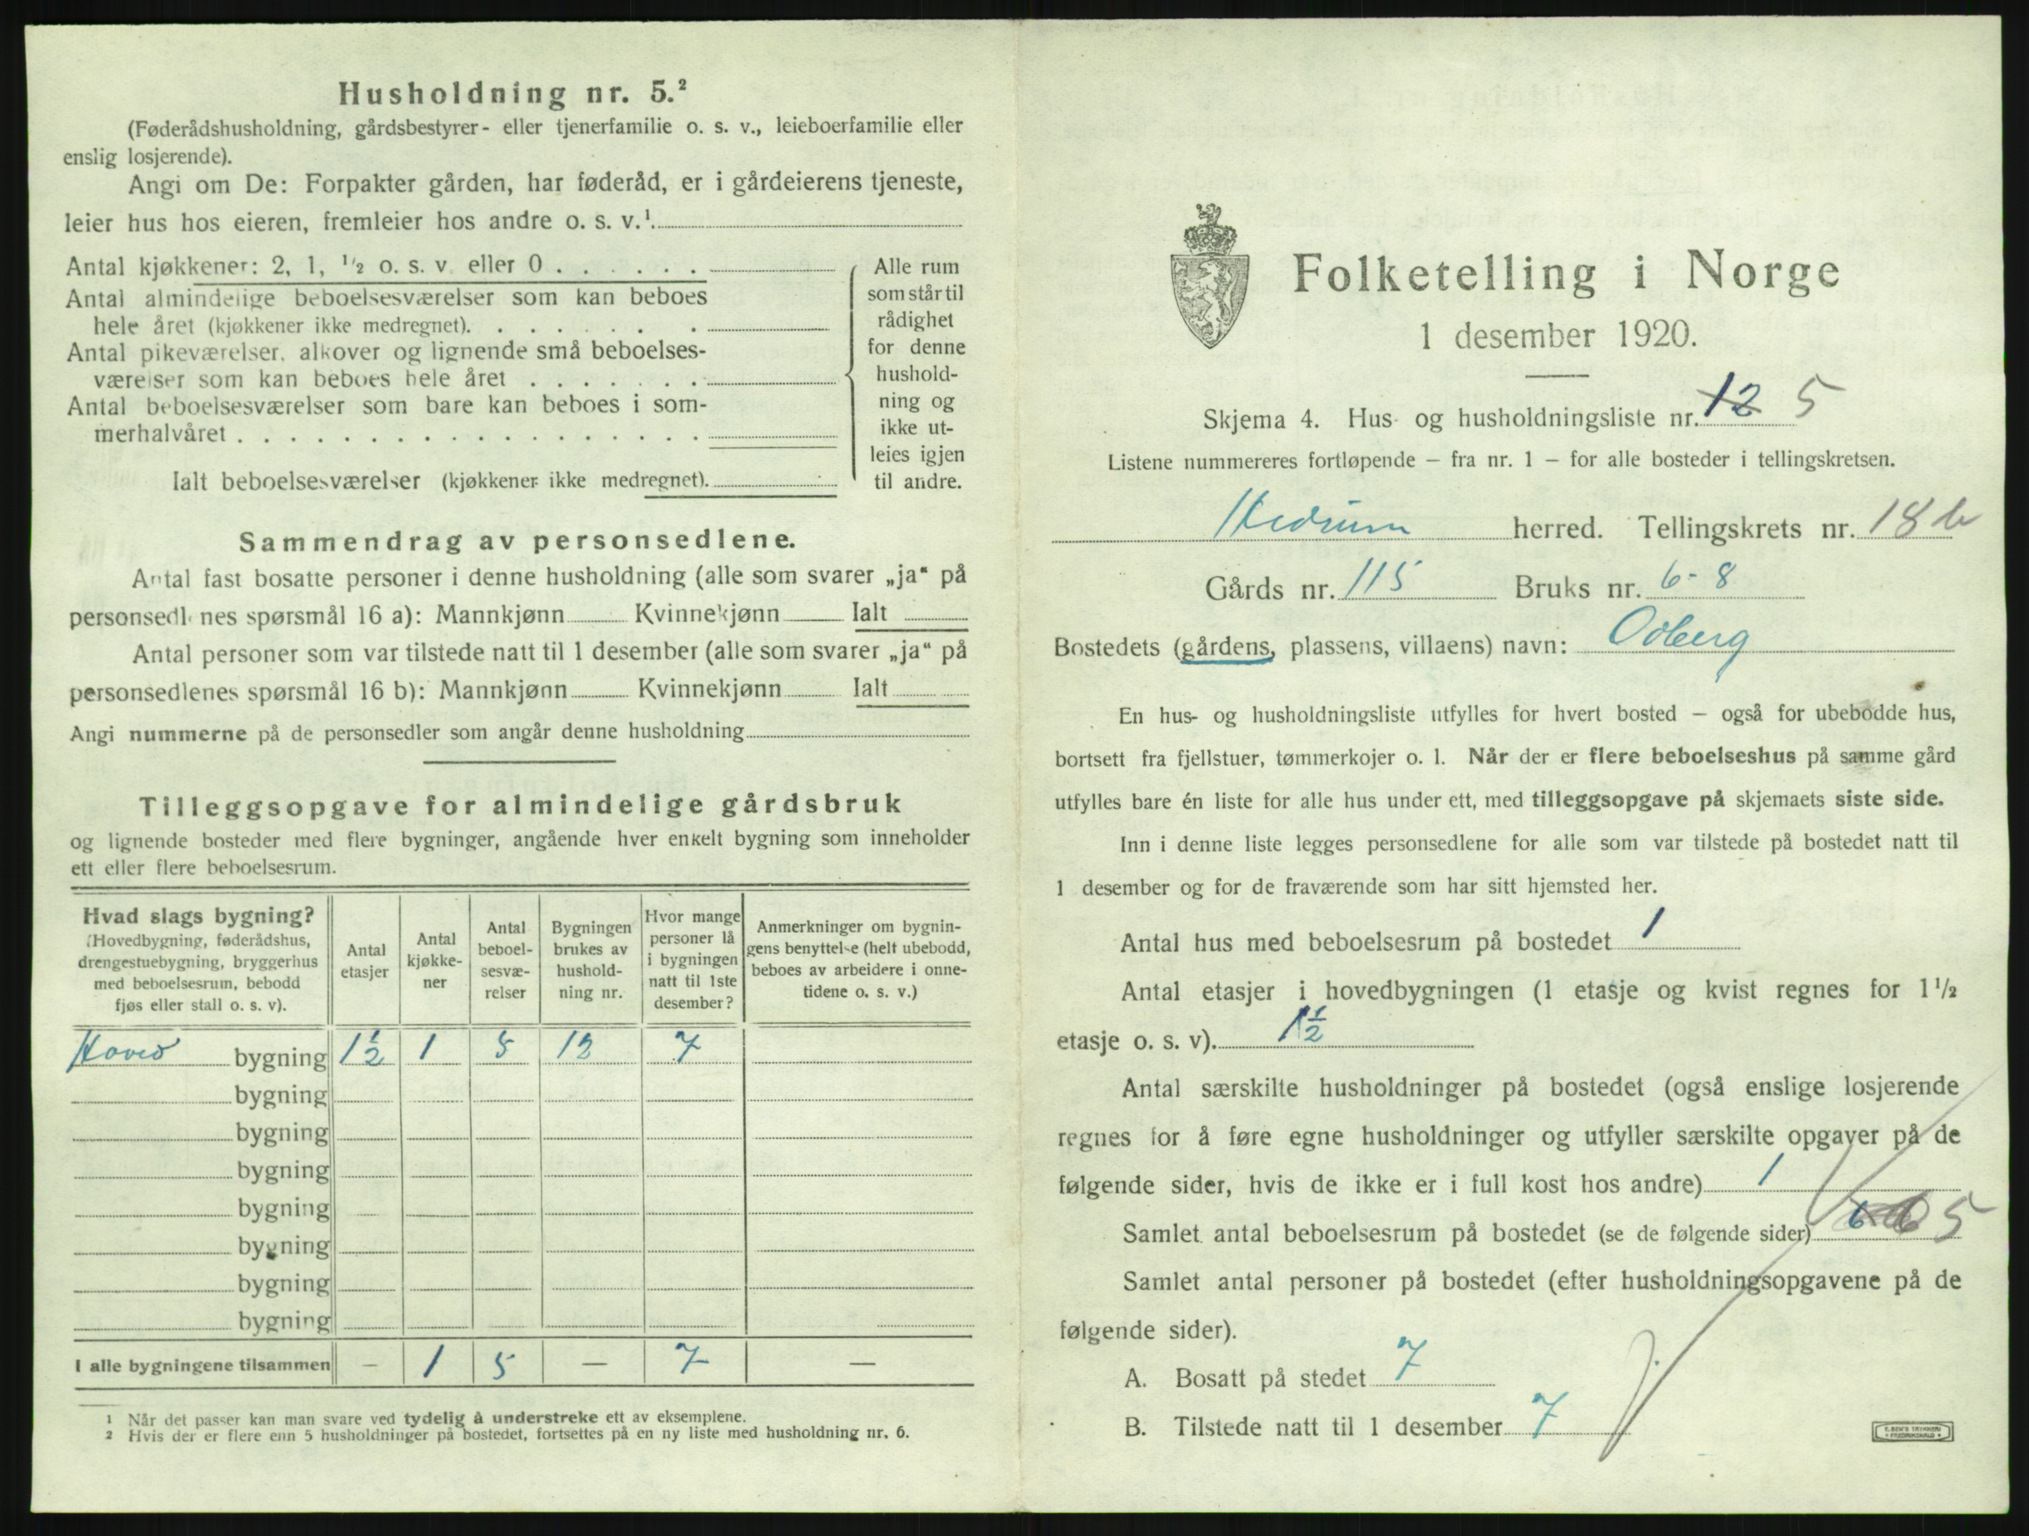 Husholdning nr. 5.²
(Føderådshusholdning, gårdsbestyrer- eller tjenerfamilie o. s. v., leieboerfamilie eller
enslig losjerende).
Angi om De: Forpakter gården, har føderåd, er i gårdeierens tjeneste,
leier hus hos eieren, fremleier hos andre o. s. v.¹
Antal kjøkkener: 2, 1, ½ o. s. v. eller 0 . . . . . .
Antal almindelige beboelsesværelser som kan beboes
hele året (kjøkkener ikke medregnet). . . . . . . .
Antal pikeværelser, alkover og lignende små beboelses-
værelser som kan beboes hele året . . . . . . .
Antal beboelsesværelser som bare kan beboes i som-
merhalvåret . . . . . . . . . . . . . . . . . .
Ialt beboelsesværelser (kjøkkener ikke medregnet).
Alle rum
som står til
rådighet
for denne
hushold-
ning og
ikke ut-
leies igjen
til andre.
Sammendrag av personsedlene.
Antal fast bosatte personer i denne husholdning (alle som svarer „ja“ på
personsedlenes spørsmål 16 a): Mannkjønn Kvinnekjønn Ialt
Antal personer som var tilstede natt til 1 desember (alle som svarer „ja“ på
personsedlenes spørsmål 16 b): Mannkjønn Kvinnekjønn Ialt
Angi nummerne på de personsedler som angår denne husholdning
Tilleggsopgave for almindelige gårdsbruk
og lignende bosteder med flere bygninger, angående hver enkelt bygning som inneholder
ett eller flere beboelsesrum.
Hvad slags bygning?
(Hovedbygning, føderådshus,
drengestuebygning, bryggerhus
med beboelsesrum, bebodd
fjøs eller stall o. s. v).
Antal
etasjer
Antal
kjøkke-
ner
Antal
beboel-
sesvæ-
relser
Bygningen
brukes av
hushold-
ning nr.
Hvor mange
personer lå
i bygningen
natt til 1ste
desember?
Anmerkninger om bygnin-
gens benyttelse (helt ubebodd,
beboes av arbeidere i onne-
tidene o. s. v.)
Hoved bygning 1½ 1 5 12 7
bygning
bygning
bygning
bygning
bygning
bygning
bygning
I alle bygningene tilsammen — 1 5 — 7 —
1 Når det passer kan man svare ved tydelig å understreke ett av eksemplene.
2 Hvis der er flere enn 5 husholdninger på bostedet, fortsettes på en ny liste med husholdning nr. 6.
Folketelling i Norge
1 desember 1920.
Skjema 4. Hus- og husholdningsliste nr. 12 5
Listene nummereres fortløpende – fra nr. 1 – for alle bosteder i tellingskretsen.
Hedrum herred. Tellingskrets nr. 18 b
Gårds nr. 115 Bruks nr. 6-8
Bostedets (gårdens, plassens, villaens) navn: Odberg
En hus- og husholdningsliste utfylles for hvert bosted – også for ubebodde hus,
bortsett fra fjellstuer, tømmerkojer o. l. Når der er flere beboelseshus på samme gård
utfylles bare én liste for alle hus under ett, med tilleggsopgave på skjemaets siste side.
Inn i denne liste legges personsedlene for alle som var tilstede på bostedet natt til
1 desember og for de fraværende som har sitt hjemsted her.
Antal hus med beboelsesrum på bostedet 1
Antal etasjer i hovedbygningen (1 etasje og kvist regnes for 1½
etasje o. s. v). 1½
Antal særskilte husholdninger på bostedet (også enslige losjerende
regnes for å føre egne husholdninger og utfyller særskilte opgaver på de
følgende sider, hvis de ikke er i full kost hos andre) 1
Samlet antal beboelsesrum på bostedet (se de følgende sider) 6 6 5
Samlet antal personer på bostedet (efter husholdningsopgavene på de
følgende sider).
A. Bosatt på stedet 7
B. Tilstede natt til 1 desember 7